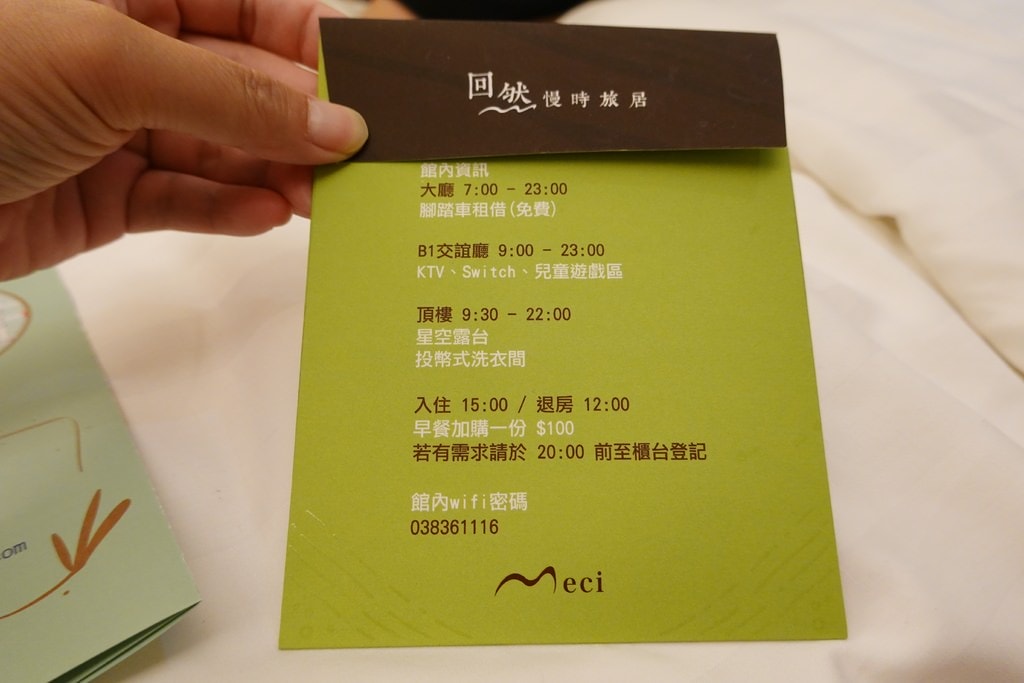 回然慢時旅居
館內資訊
大廳 7:00 - 23:00
腳踏車租借(免費)
B1交誼廳 9:00 - 23:00
KTV、Switch、兒童遊戲區
頂樓 9:30 - 22:00
星空露台
投幣式洗衣間
入住 15:00 / 退房 12:00
早餐加購一份 $100
若有需求請於 20:00 前至櫃台登記
館內wifi密碼
038361116
Meci
.com